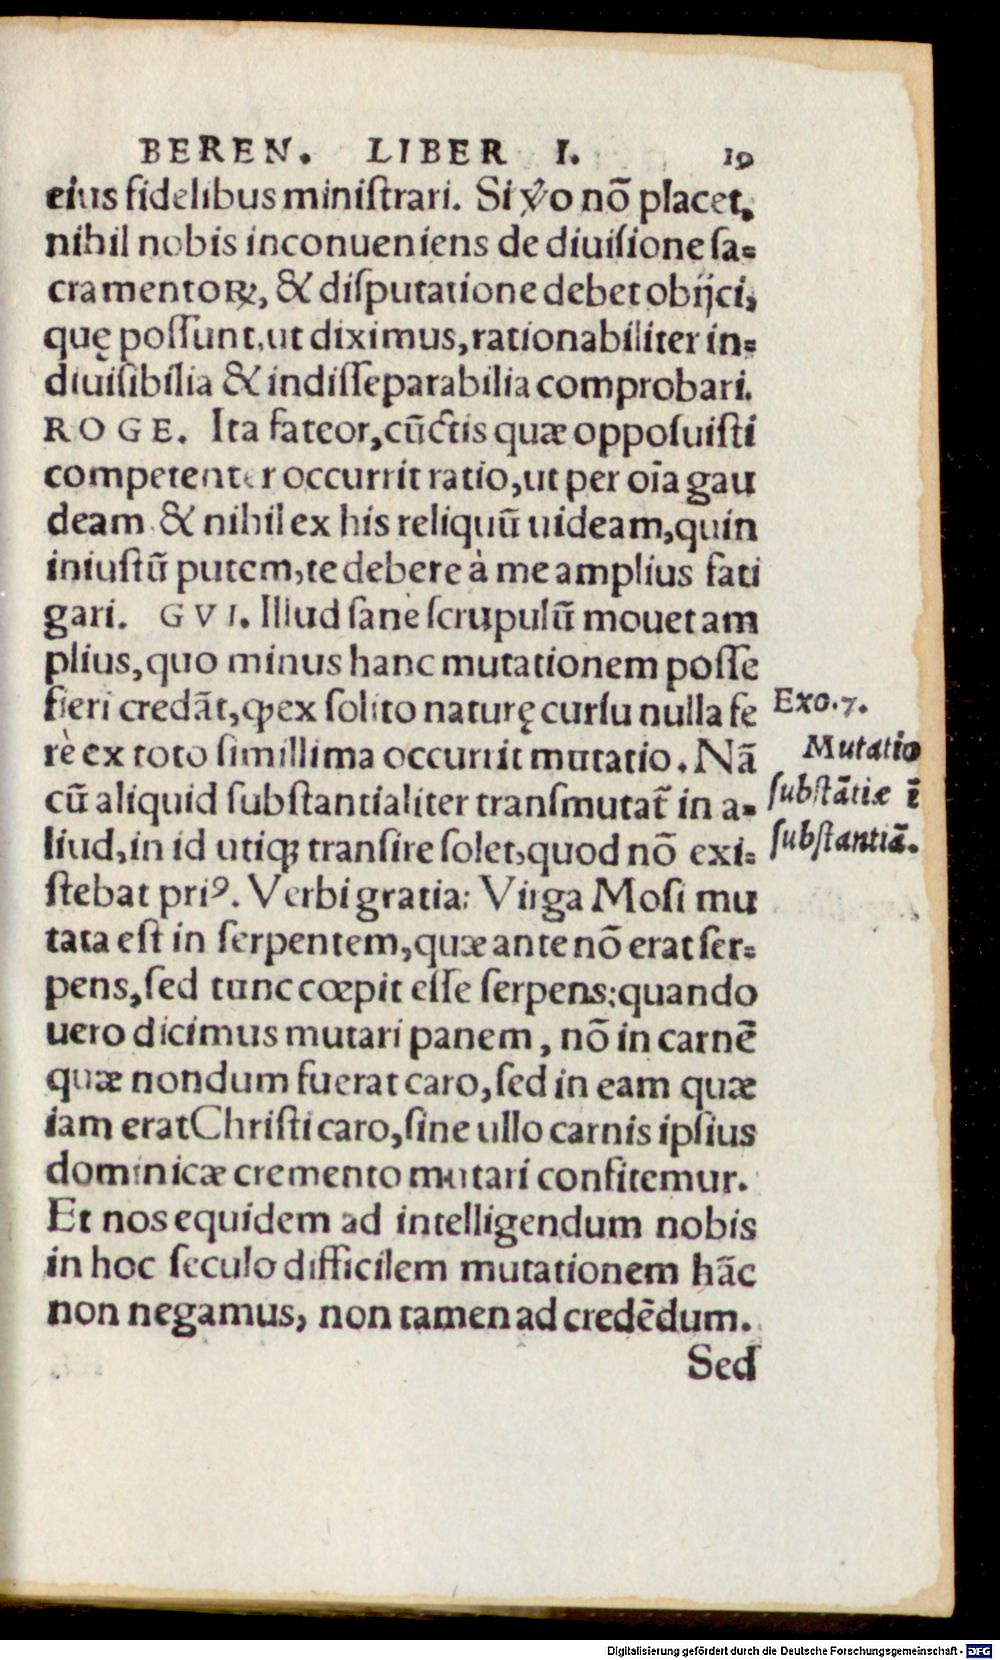 BEREN. LIBER I. 19
eius fidelibus miniſtrari. Si ꝟo nõ placet,
nihil nobis inconueniens de diuiſione ſa-
cramentoꝝ, & diſputatione debet obijci,
quę poſſunt, ut diximus, rationabiliter in-
diuiſibilia & indiſſeparabilia comprobari.
ROGE. Ita fateor, cũctis quæ oppoſuiſti
competenter occurrit ratio, ut per oĩa gau
deam & nihil ex his reliquũ uideam, quin
iniuſtũ putem, te debere à me amplius fati
gari. GVI. Illud ſanè ſcrupulũ mouet am
plius, quo minus hanc mutationem poſſe
fieri credãt, ꝙ ex ſolito naturę curſu nulla fe
rè ex toto ſimillima occurrit mutatio. Nã
cũ aliquid ſubſtantialiter tranſmutat̃ in a-
liud, in id utiqꝫ tranſire ſolet, quod nõ exi-
ſtebat priꝰ. Verbi gratia: Virga Moſi mu
tata eſt in ſerpentem, quæ ante nõ erat ſer-
pens, ſed tunc cœpit eſſe ſerpens: quando
uero dicimus mutari panem, nõ in carnẽ
quæ nondum fuerat caro, ſed in eam quæ
iam erat Chriſti caro, ſine ullo carnis ipſius
dominicæ cremento mutari confitemur.
Et nos equidem ad intelligendum nobis
in hoc ſeculo difficilem mutationem hãc
non negamus, non tamen ad credẽdum.
Sed
Exo.7.
Mutatio
ſubſtãtiæ ĩ
ſubſtantiã.
Digitalisierung gefördert durch die Deutsche Forschungsgemeinschaft - DFG